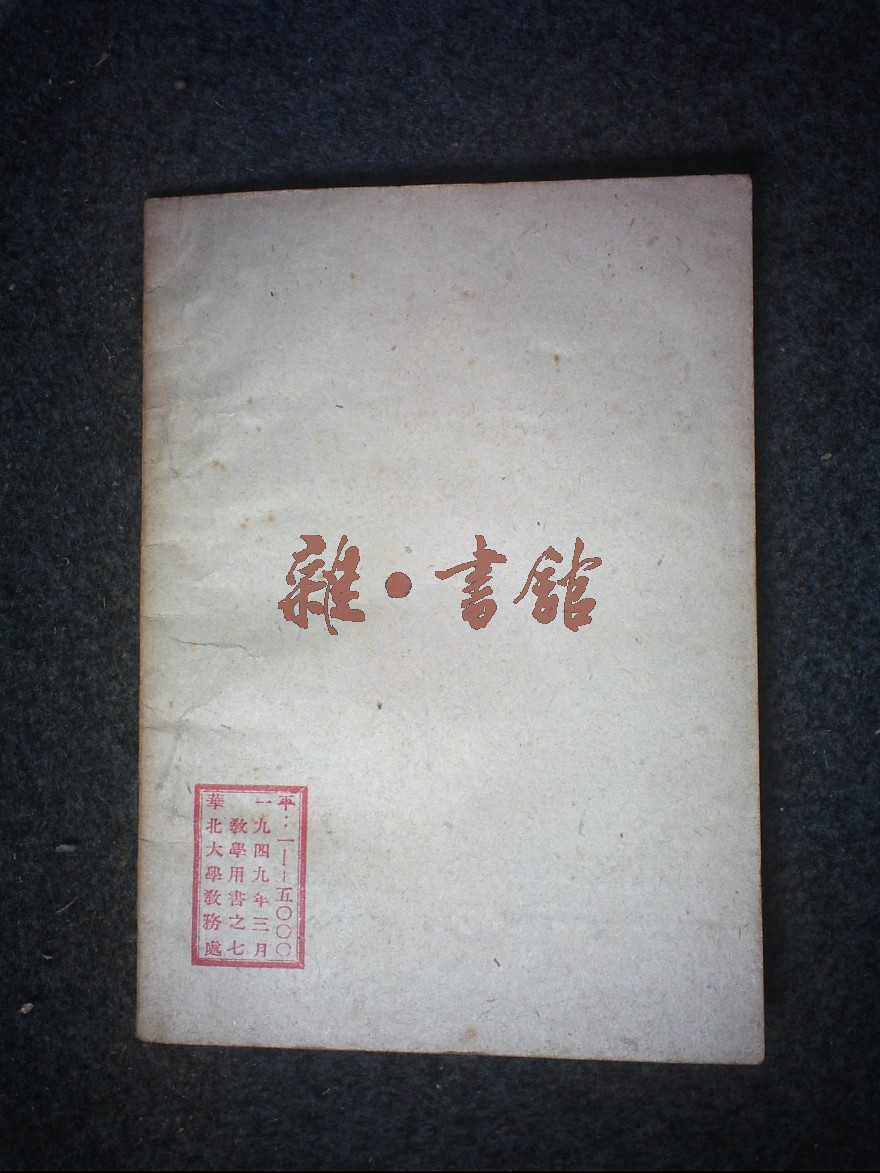 雜·書舘
華北大學教務處
教學用書之七
一九四九年三月
平：一——五〇〇〇